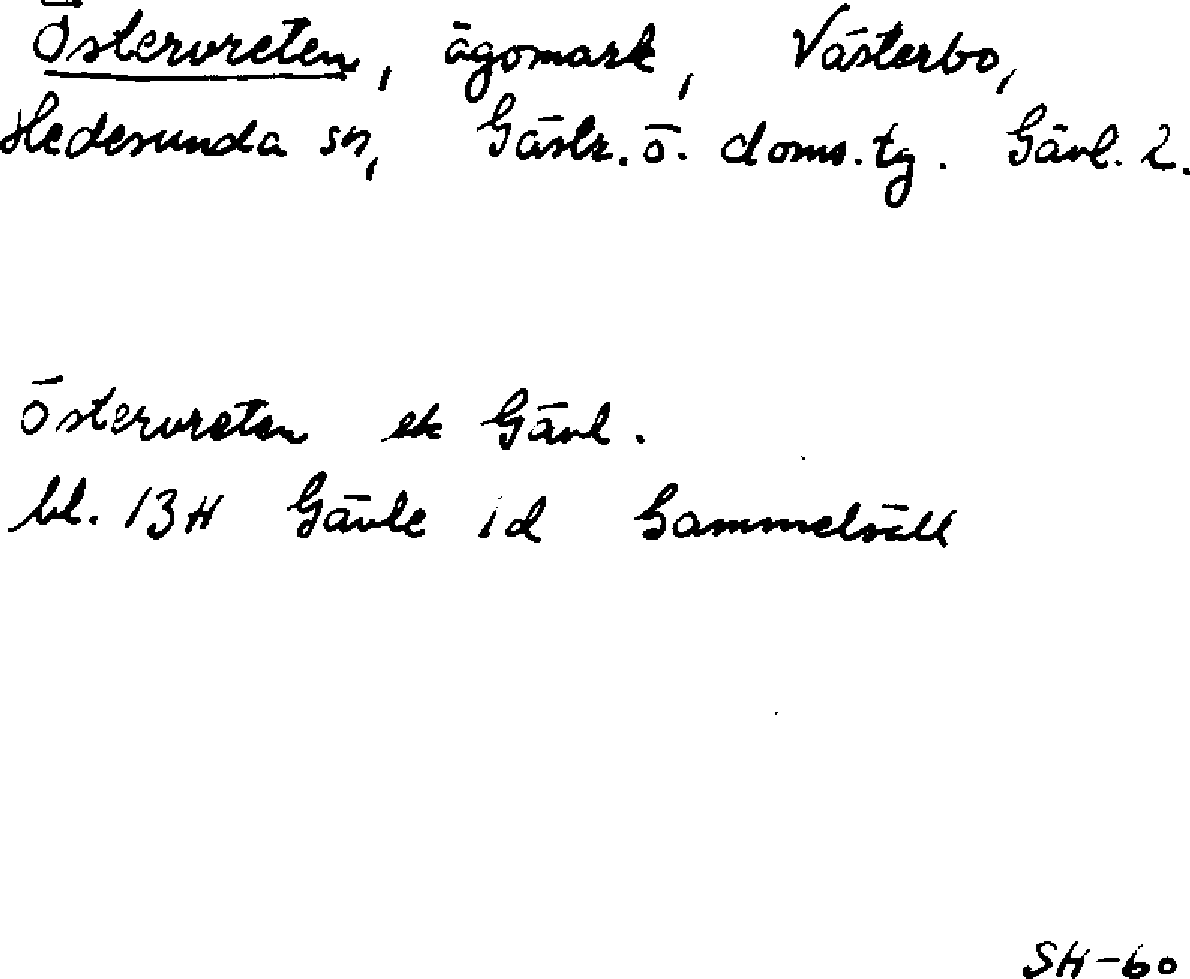 Östervreten, ägomark, Västerbo,
Hedesunda sn, Gästr. ö. doms. tg. Gävl. l.
Östervreten ek Gävl.
bl. 13H Gävle 1d Gammelsäll
SH-60